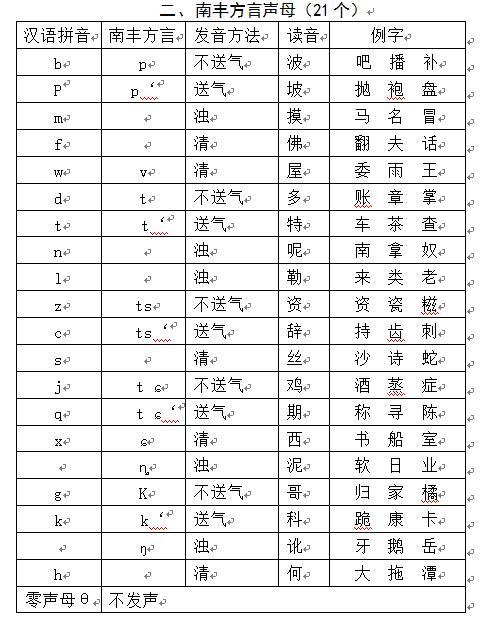 二、南丰方言声母（21个）
汉语拼音 南丰方言 发音方法 读音 例字
b p 不送气 波 吧 播 补
P p ‘ 送气 坡 抛 袍 盘
m 浊 摸 马 名 冒
f 清 佛 翻 夫 话
w v 清 屋 委 雨 王
d t 不送气 多 账 章 掌
t t ‘ 送气 特 车 茶 查
n 浊 呢 南 拿 奴
l 浊 勒 来 类 老
z ts 不送气 资 资 瓷 糍
c ts ‘ 送气 辞 持 齿 刺
s 清 丝 沙 诗 蛇
j t ɕ 不送气 鸡 酒 蒸 症
q t ɕ ‘ 送气 期 称 寻 陈
x ɕ 清 西 书 船 室
ȵ 浊 泥 软 日 业
g K 不送气 哥 归 家 橘
k k ‘ 送气 科 跪 康 卡
ŋ 浊 讹 牙 鹅 岳
h 清 何 大 拖 潭
零声母θ 不发声